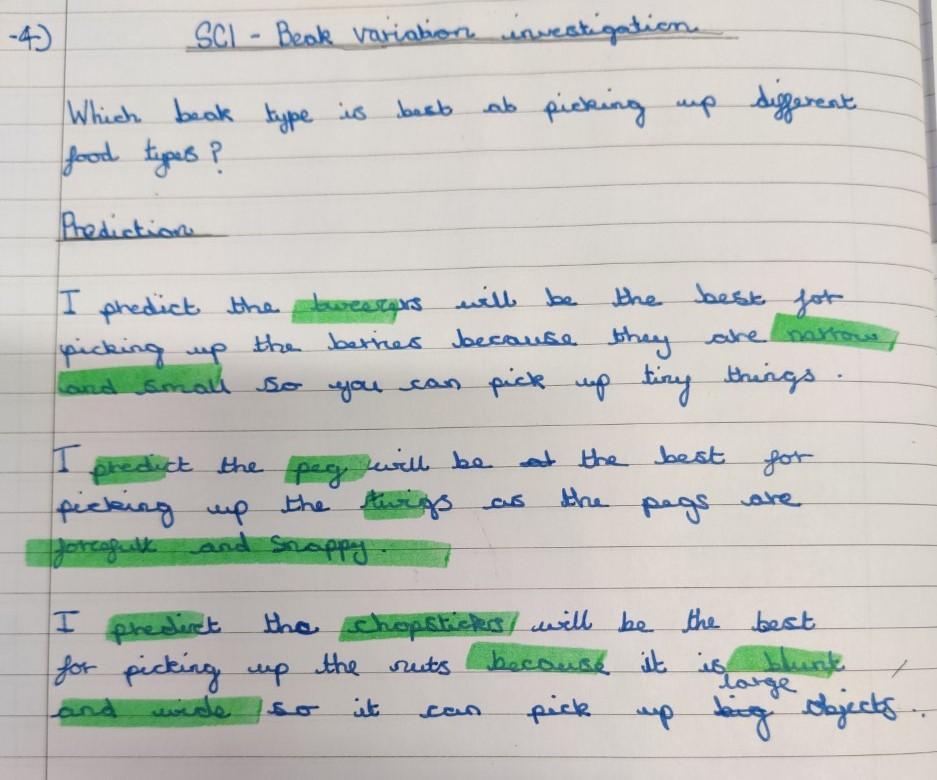 -4)
SCI - Beak variation investigation
Which beak type is best at picking up different
food types?
Prediction
I predict the tweezers will be the best for
picking up the berries because they are narrow
and small so you can pick up tiny things.
I predict the peg will be at the best for
picking up the twigs as the pegs are
forcefull and snappy.
I predict the chopsticks will be the best
for picking up the nuts because it is blunt
large
and wide so it can pick up big objects.